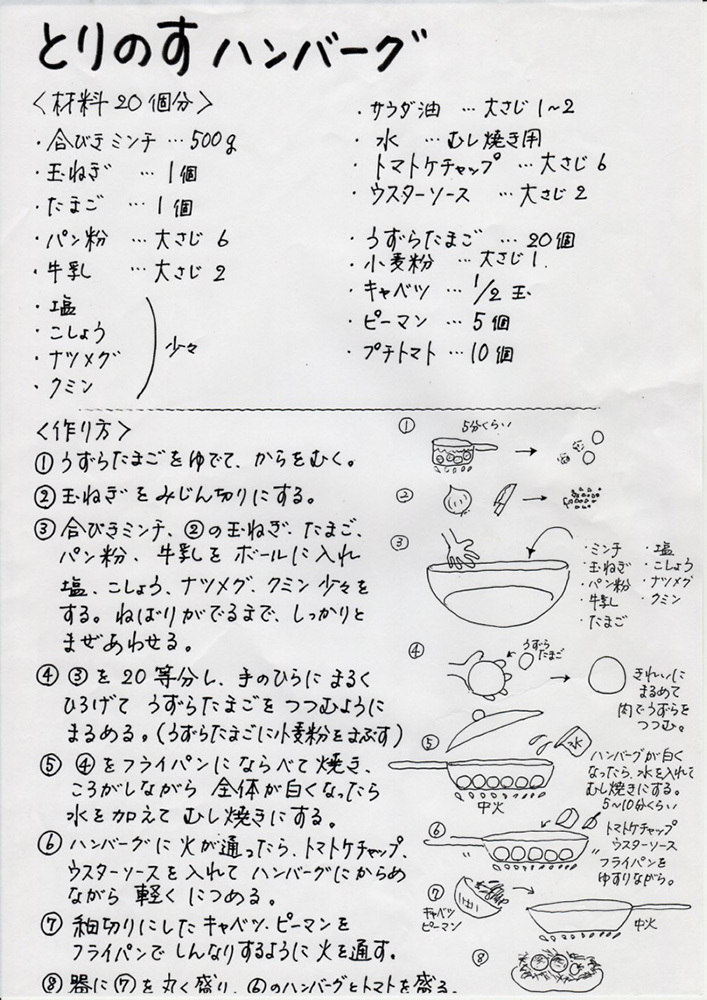 とりのすハンバーグ
<材料20個分>
・合びきミンチ…500g
・玉ねぎ …1個
・たまご …1個
・パン粉 …大さじ6
・牛乳 …大さじ2
・塩
・こしょう
・ナツメグ
・クミン
少々
・サラダ油 …大さじ1~2
・水 …むし焼き用
・トマトケチャップ …大さじ6
・ウスターソース …大さじ2
・うずらたまご …20個
・小麦粉 …大さじ1.
・キャベツ …1/2玉
・ピーマン …5個
・プチトマト…10個
<作り方>
①うずらたまごをゆでて、からをむく。
②玉ねぎをみじん切りにする。
③合びきミンチ、②の玉ねぎ、たまご、
パン粉、牛乳をボールに入れ
塩、こしょう、ナツメグ、クミン少々を
する。ねばりがでるまで、しっかりと
まぜあわせる。
④③を20等分し、手のひらにまるく
ひろげてうずらたまごをつつむように
まるめる。(うずらたまごに小麦粉をまぶす)
⑤④をフライパンにならべて焼き、
ころがしながら全体が白くなったら
水を加えてむし焼きにする。
⑥ハンバーグに火が通ったら、トマトケチャップ、
ウスターソースを入れてハンバーグにからめ
ながら軽くにつめる。
⑦細切りにしたキャベツ、ピーマンを
フライパンでしんなりするように火を通す。
⑧器に⑦を丸く盛り、⑥のハンバーグとトマトを盛る。
①
5分くらい
②
③
・ミンチ
・玉ねぎ
・パン粉
・牛乳
・たまご
・塩
・こしょう
・ナツメグ
・クミン
④
うずら
たまご
きれいに
まるめて
肉でうずらを
つつむ。
⑤
水
中火
ハンバーグが白く
なったら、水を入れて
むし焼きにする。
5~10分くらい
⑥
トマトケチャップ
ウスターソース
フライパンを
ゆすりながら。
⑦
キャベツ
ピーマン
中火
⑧